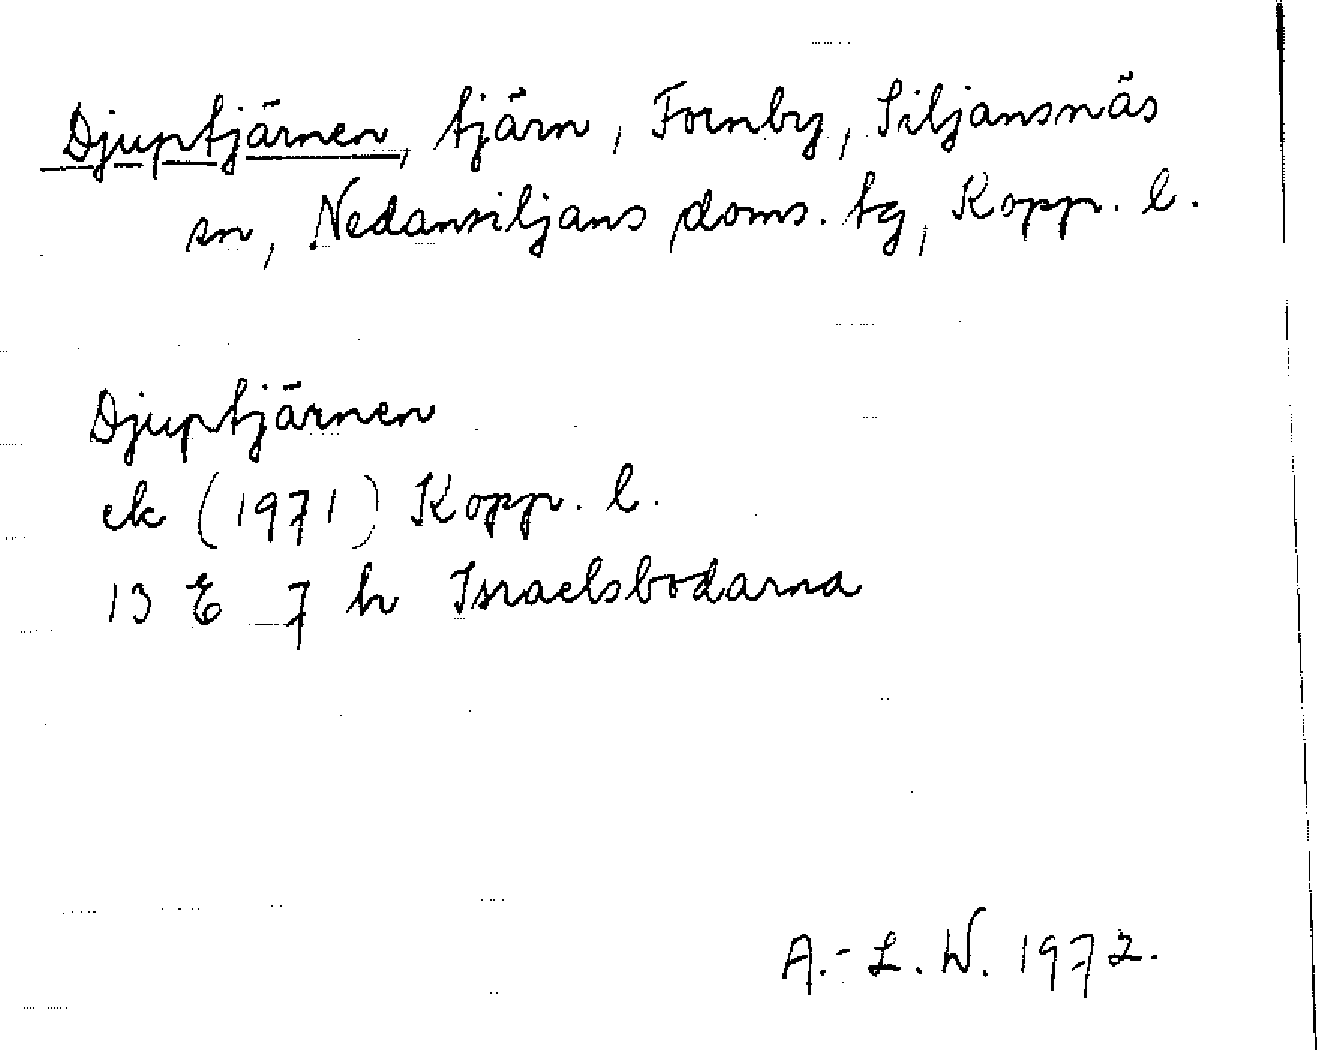 Djuptjärnen, tjärn, Fornby, Siljansnäs
sn, Nedansiljans doms. tg, Kopp. l.
Djuptjärnen
ek (1971) Kopp. l.
13 E 7 h Israelsbodarna
A.-L. W. 1972.